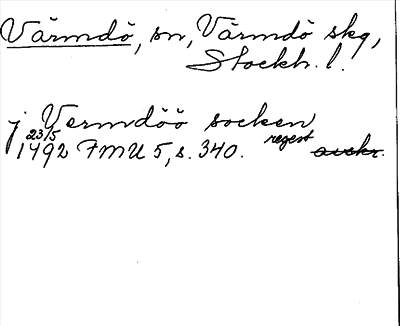 Värmdö, sn, Värmdö skg,
Stockh. l.
j Vermdöö socken
23/5 1492 FMU 5, s. 340. regest avskr.